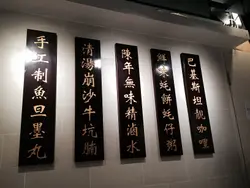 巴基斯坦靚咖喱
鮮蚝餅蚝仔粥
陳年無味精滷水
清湯崩沙牛坑腩
手工制魚旦墨丸